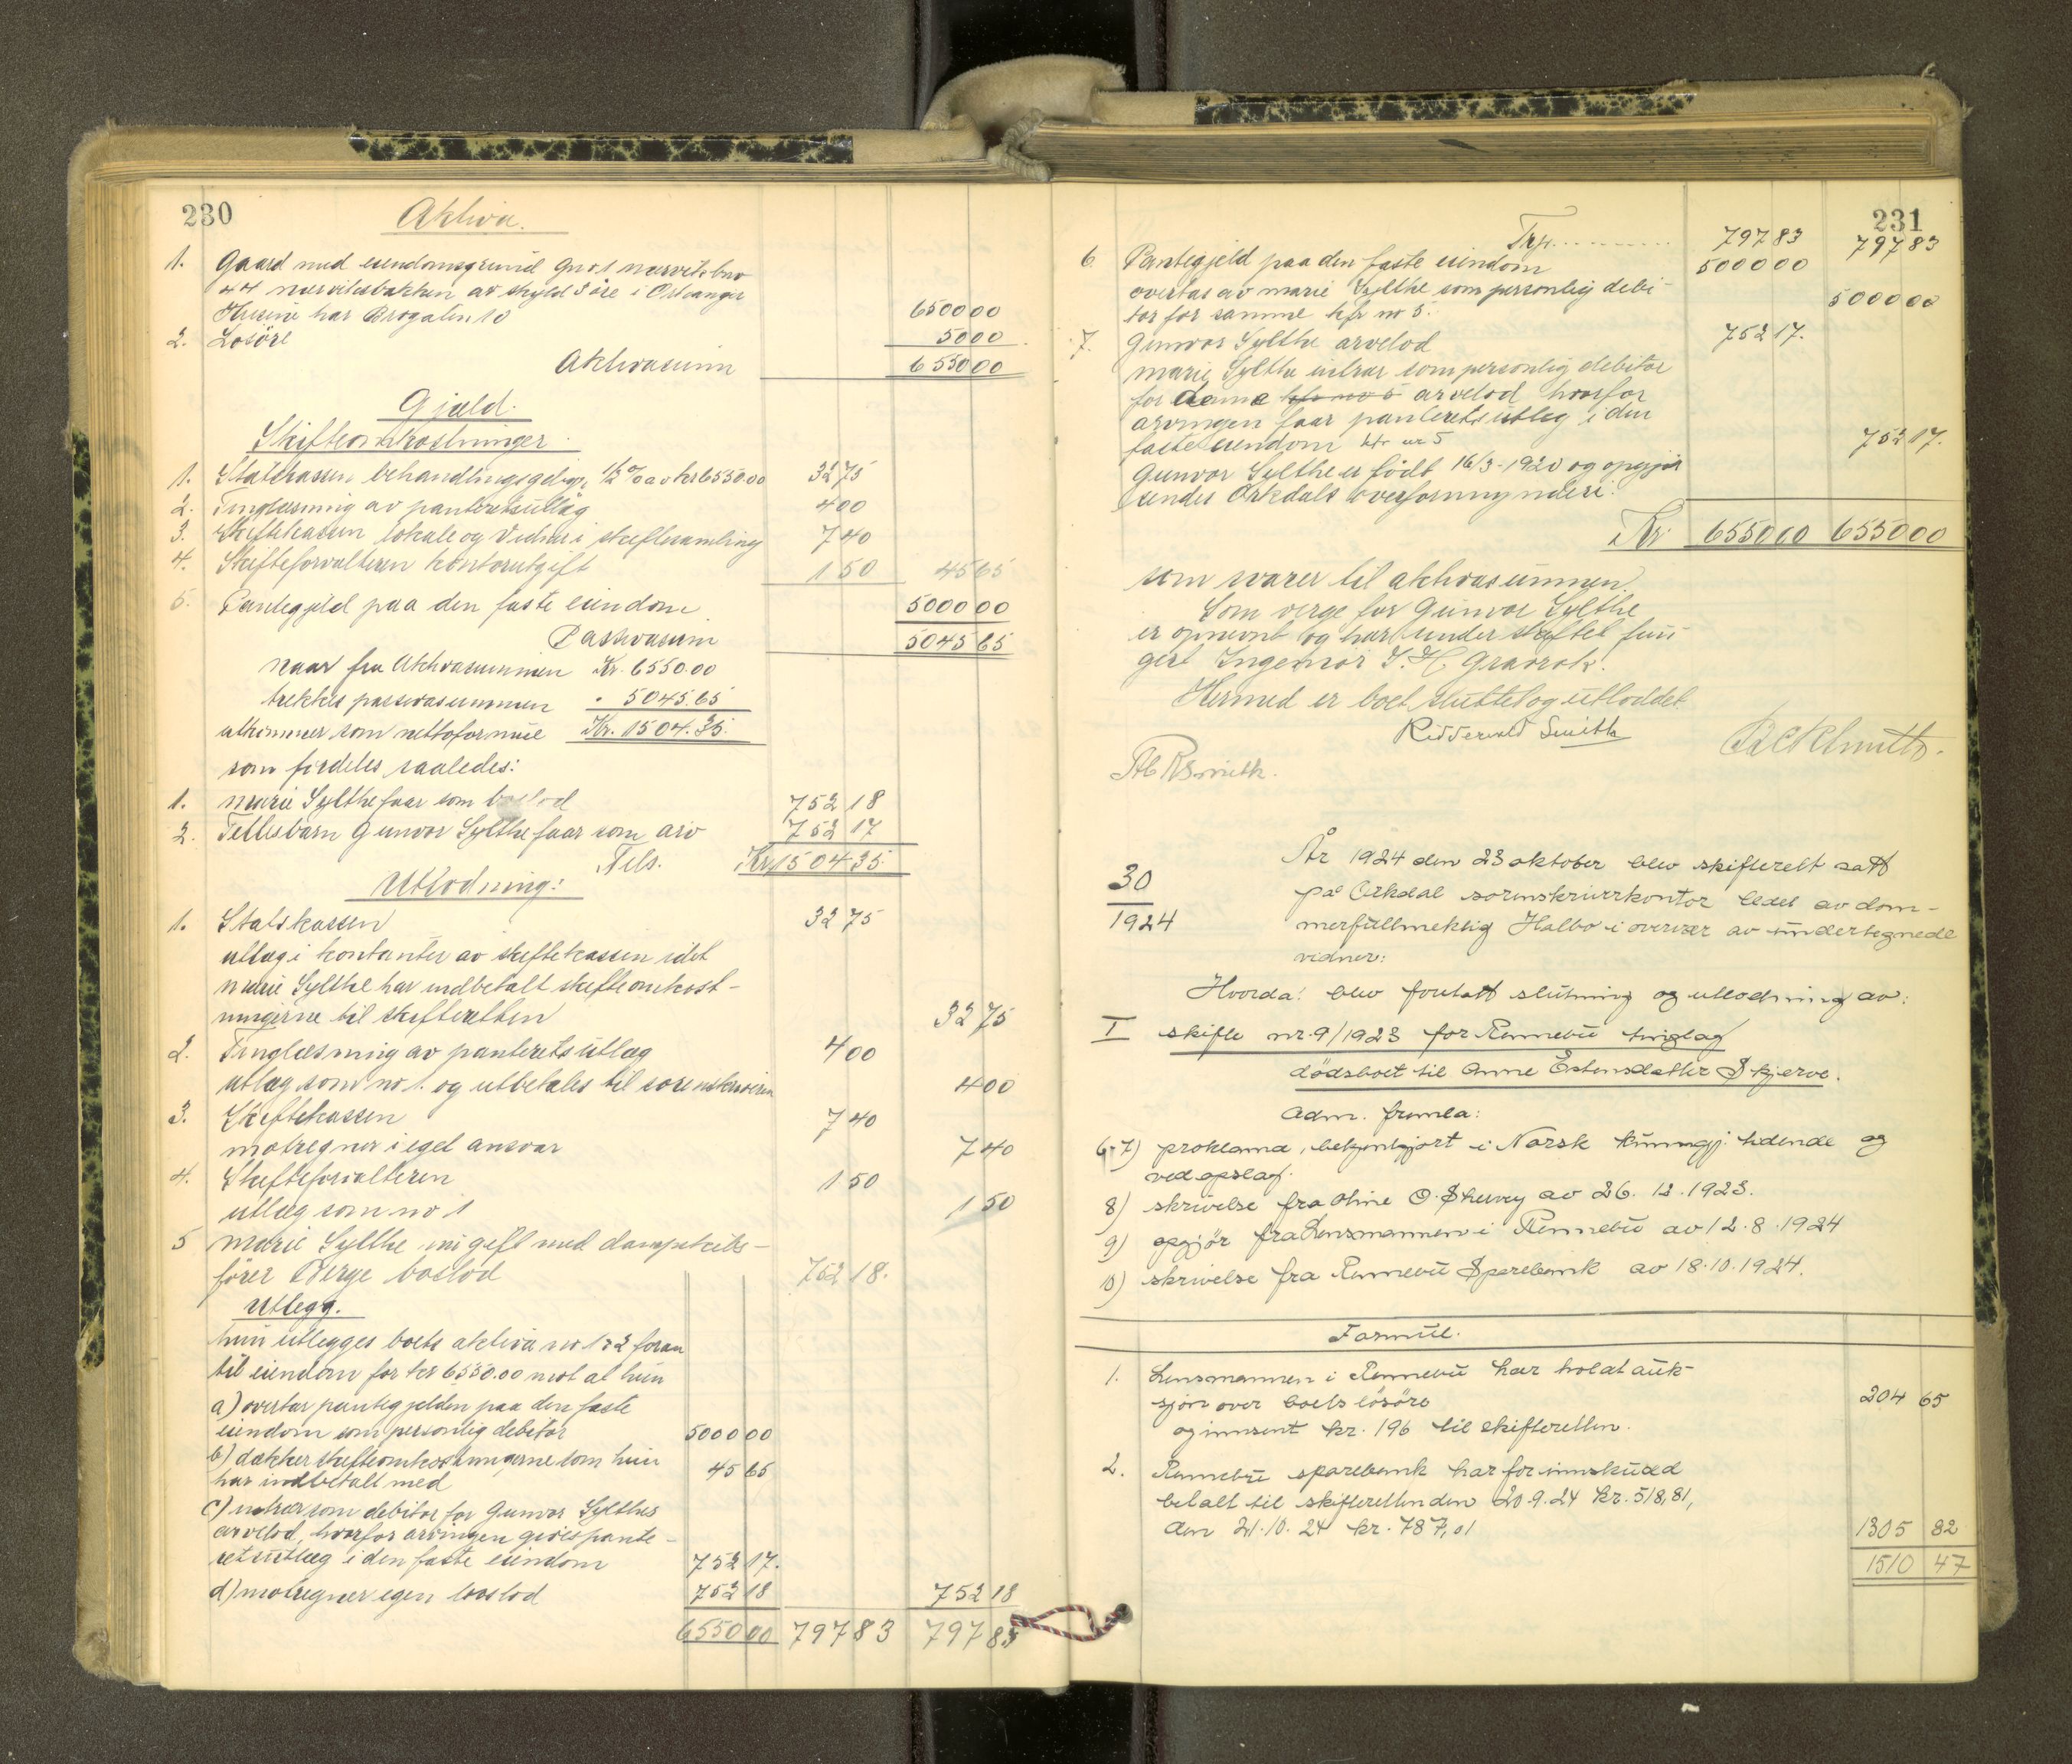 230
Aktiva.
1. Gaard med eiendomsgrund Gno 1 nærvik bno
44 nærviksbakken av skyld 3 øre i Orkanger
Husene har Brogaten 10 6500 00
2. Løsøre 50 00
Aktivasum 6550 00
Gjæld.
Skifteomkostninger.
1. Statskassen behandlingsgebyr 1/2 % av kr 6550.00 32 75
2. Tinglæsning av panteretsutlæg 4 00
3. Skiftekassen lokale og vidner i skiftesamling 7 40
4. Skifteforvalteren kontorutgift 1 50 45 65
5. Pantegjæld paa den faste eiendom 5000 00
Passivasum 5045 65
Naar fra Aktivasummen Kr. 6550.00
trekkes passivasummen " 5045.65
utkommer som nettoformue Kr. 1504.35.
som fordeles saaledes:
1. Marie Sylthe faar som boslod 752 18
2. Fellesbarn Gunvor Sylthe faar som arv 752 17
Tils. Kr. 1504 35.
Utlodning:
1. Statskassen 32 75
utlæg i kontanter av skiftekassen idet
Marie Sylthe har indbetalt skifteomkost-
ningerne til skifteretten 32 75
2. Tinglæsning av panterets utlæg 4 00
utlæg som no 1. og utbetales til sorenskriveren 4 00
3. Skiftekassen 7 40
motregner i eget ansvar 7 40
4. Skifteforvalteren 1 50
utlæg som no 1 1 50
5 Marie Sylthe nu gift med dampskibs-
fører Berge boslod 752 18.
Utlegg.
hun utlegges boets aktiva no 1 & 2 foran
til eiendom for kr 6550.00 mot at hun
a) overtar pantegjelden paa den faste
eiendom som personlig debitor 5000 00
b) dækker skifteomkostningerne som hun
har indbetalt med 45 65
c) indtrær som debitor for Gunvor Sylthes
arvelod, hvorfor arvingen gives pante-
retsutlæg i den faste eiendom 752 17.
d) motregner egen boslod 752 18 752 18
6550 00 797 83 797 83
231
Trp. .......... 797 83 797 83
6. Pantegjeld paa den faste eiendom 5000 00
overtas av Marie Sylthe som personlig debi-
tor for samme kfr no 5. 5000 00
7. Gunvor Sylthe arvelod 752 17.
Marie Sylthe intrær som personlig debitor
for denne kfr no 5 arvelod hvorfor
arvingen faar panteretsutlæg i den
faste eiendom kfr nr 5 752 17.
Gunvor Sylthe er født 16/3-1920 og opgjør
sendes Orkdals overformynderi.
Kr 6550 00 6550 00
som svarer til aktivasummen.
Som verge for Gunvor Sylthe
er opnevnt og har under skiftet fun-
gert Ingeniør J. H. Gravrok.
Hermed er boet sluttet og utloddet.
Ridderwold Smith
Ab RSmith.
30
1924
År 1924 den 23 oktober blev skifterett satt
på Orkdal sorenskriverkontor ledet av dom-
merfullmektig Halbo i overvær av undertegnede
vidner:
Hvorda: blev foretatt slutning og utlodning av:
I skifte nr. 9/1923 for Rennebu tinglag
dødsboet til Anne Estensdatter Skjerve.
Adm. fremla:
6-7) proklama, bekjentgjort i Norsk kunngj. tidende og
ved opslag.
8) skrivelse fra Oline O. Skurvy av 26. 12. 1923.
9) opgjør fra Lensmannen i Rennebu av 12. 8. 1924
10) skrivelse fra Rennebu Sparebank av 18. 10. 1924.
Formue.
1. Lensmannen i Rennebu har holdt auk-
sjon over boets løsøre 204 65
og innsent kr. 196 til skifteretten.
2. Rennebu sparebank har for innskudd
betalt til skifteretten den 20. 9. 24 kr. 518,81,
den 21. 10. 24 kr. 787,01 1305 82
1510 47